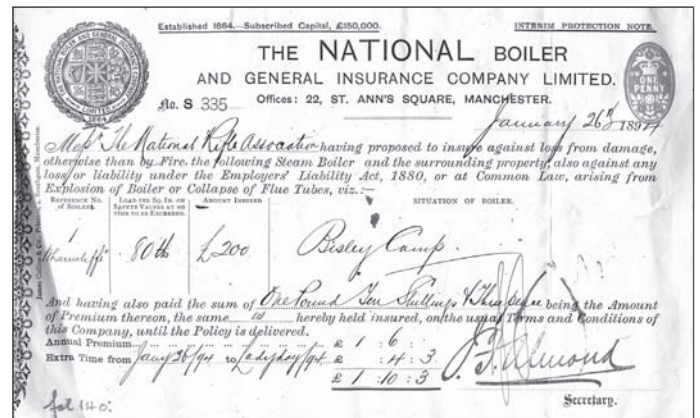 Established 1864.—Subscribed Capital, £150,000.
INTERIM PROTECTION NOTE.
THE NATIONAL BOILER
AND GENERAL INSURANCE COMPANY LIMITED.
No. S 335
Offices: 22, ST. ANN'S SQUARE, MANCHESTER.
ONE PENNY
THE NATIONAL BOILER AND GENERAL INSURANCE COMPANY LIMITED
1864
January 26th 1894
Messrs The National Rifle Association having proposed to insure against loss from damage,
otherwise than by Fire, the following Steam Boiler and the surrounding property, also against any
loss or liability under the Employers' Liability Act, 1880, or at Common Law, arising from
Explosion of Boiler or Collapse of Flue Tubes, viz.:—
REFERENCE No. of BOILER.
LOAD PER SQ. IN. ON SAFETY VALVES AT NO TIME TO BE EXCEEDED.
AMOUNT INSURED
SITUATION OF BOILER.
1
80 lb
£200
Bisley Camp.
And having also paid the sum of One Pound Ten Shillings & Three pence being the Amount
of Premium thereon, the same is hereby held insured, on the usual Terms and Conditions of
this Company, until the Policy is delivered.
Annual Premium £ 1 : 6 :
Extra Time from Jany 26/94 to Ladyday/94 £ : 4 : 3
£ 1 : 10 : 3
Secretary.
fol 140.